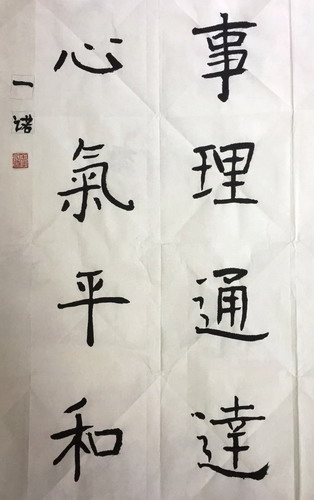 事理通達
心氣平和
一诺